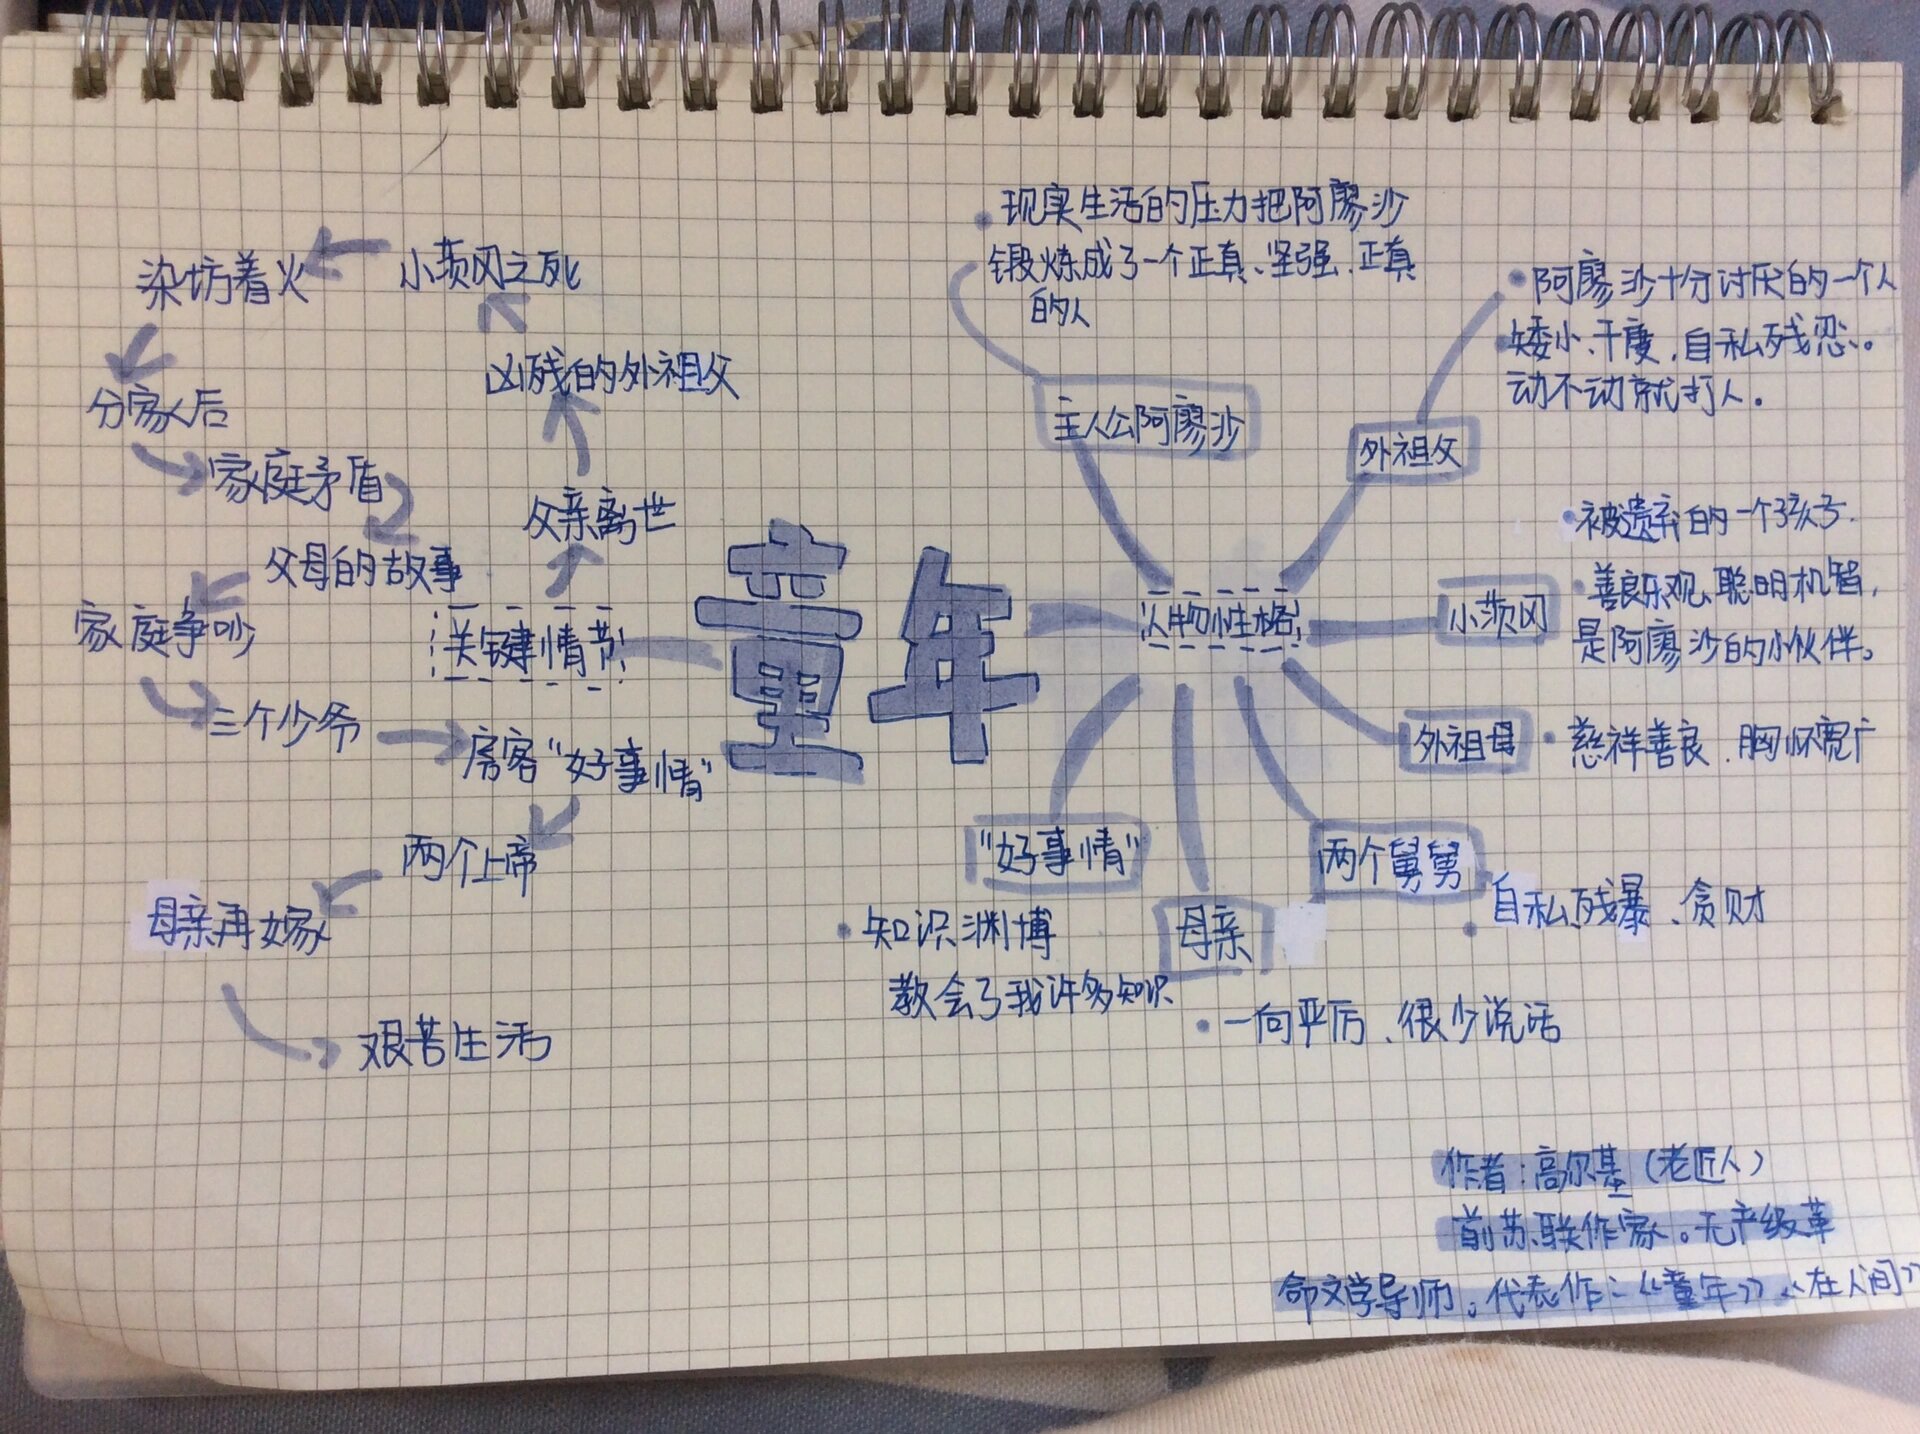 童年
关键情节
父亲离世
凶残的外祖父
小茨冈之死
染坊着火
分家后
家庭矛盾
父母的故事
家庭争吵
三个少爷
房客“好事情”
两个上帝
母亲再嫁
艰苦生活
人物性格
主人公阿廖沙
现实生活的压力把阿廖沙
锻炼成了一个正真、坚强、正真
的人
外祖父
阿廖沙十分讨厌的一个人
矮小、干瘦，自私残忍。
动不动就打人。
小茨冈
被遗弃的一个孩子.
善良乐观、聪明机智，
是阿廖沙的小伙伴。
外祖母
慈祥善良、胸怀宽广
两个舅舅
自私、残暴、贪财
母亲
一向严厉、很少说话
“好事情”
知识渊博
教会了我许多知识
作者：高尔基（老匠人）
前苏联作家。无产级革
命文学导师。代表作：《童年》《在人间》